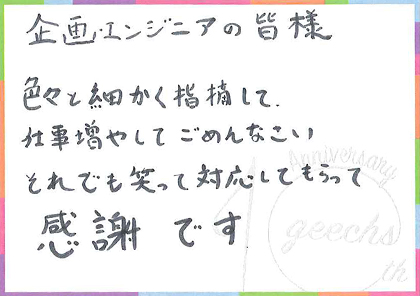 企画・エンジニアの皆様
色々と細かく指摘して、
仕事増やしてごめんなさい
それでも笑って対応してもらって
感謝です
10
Anniversary
geechs
th